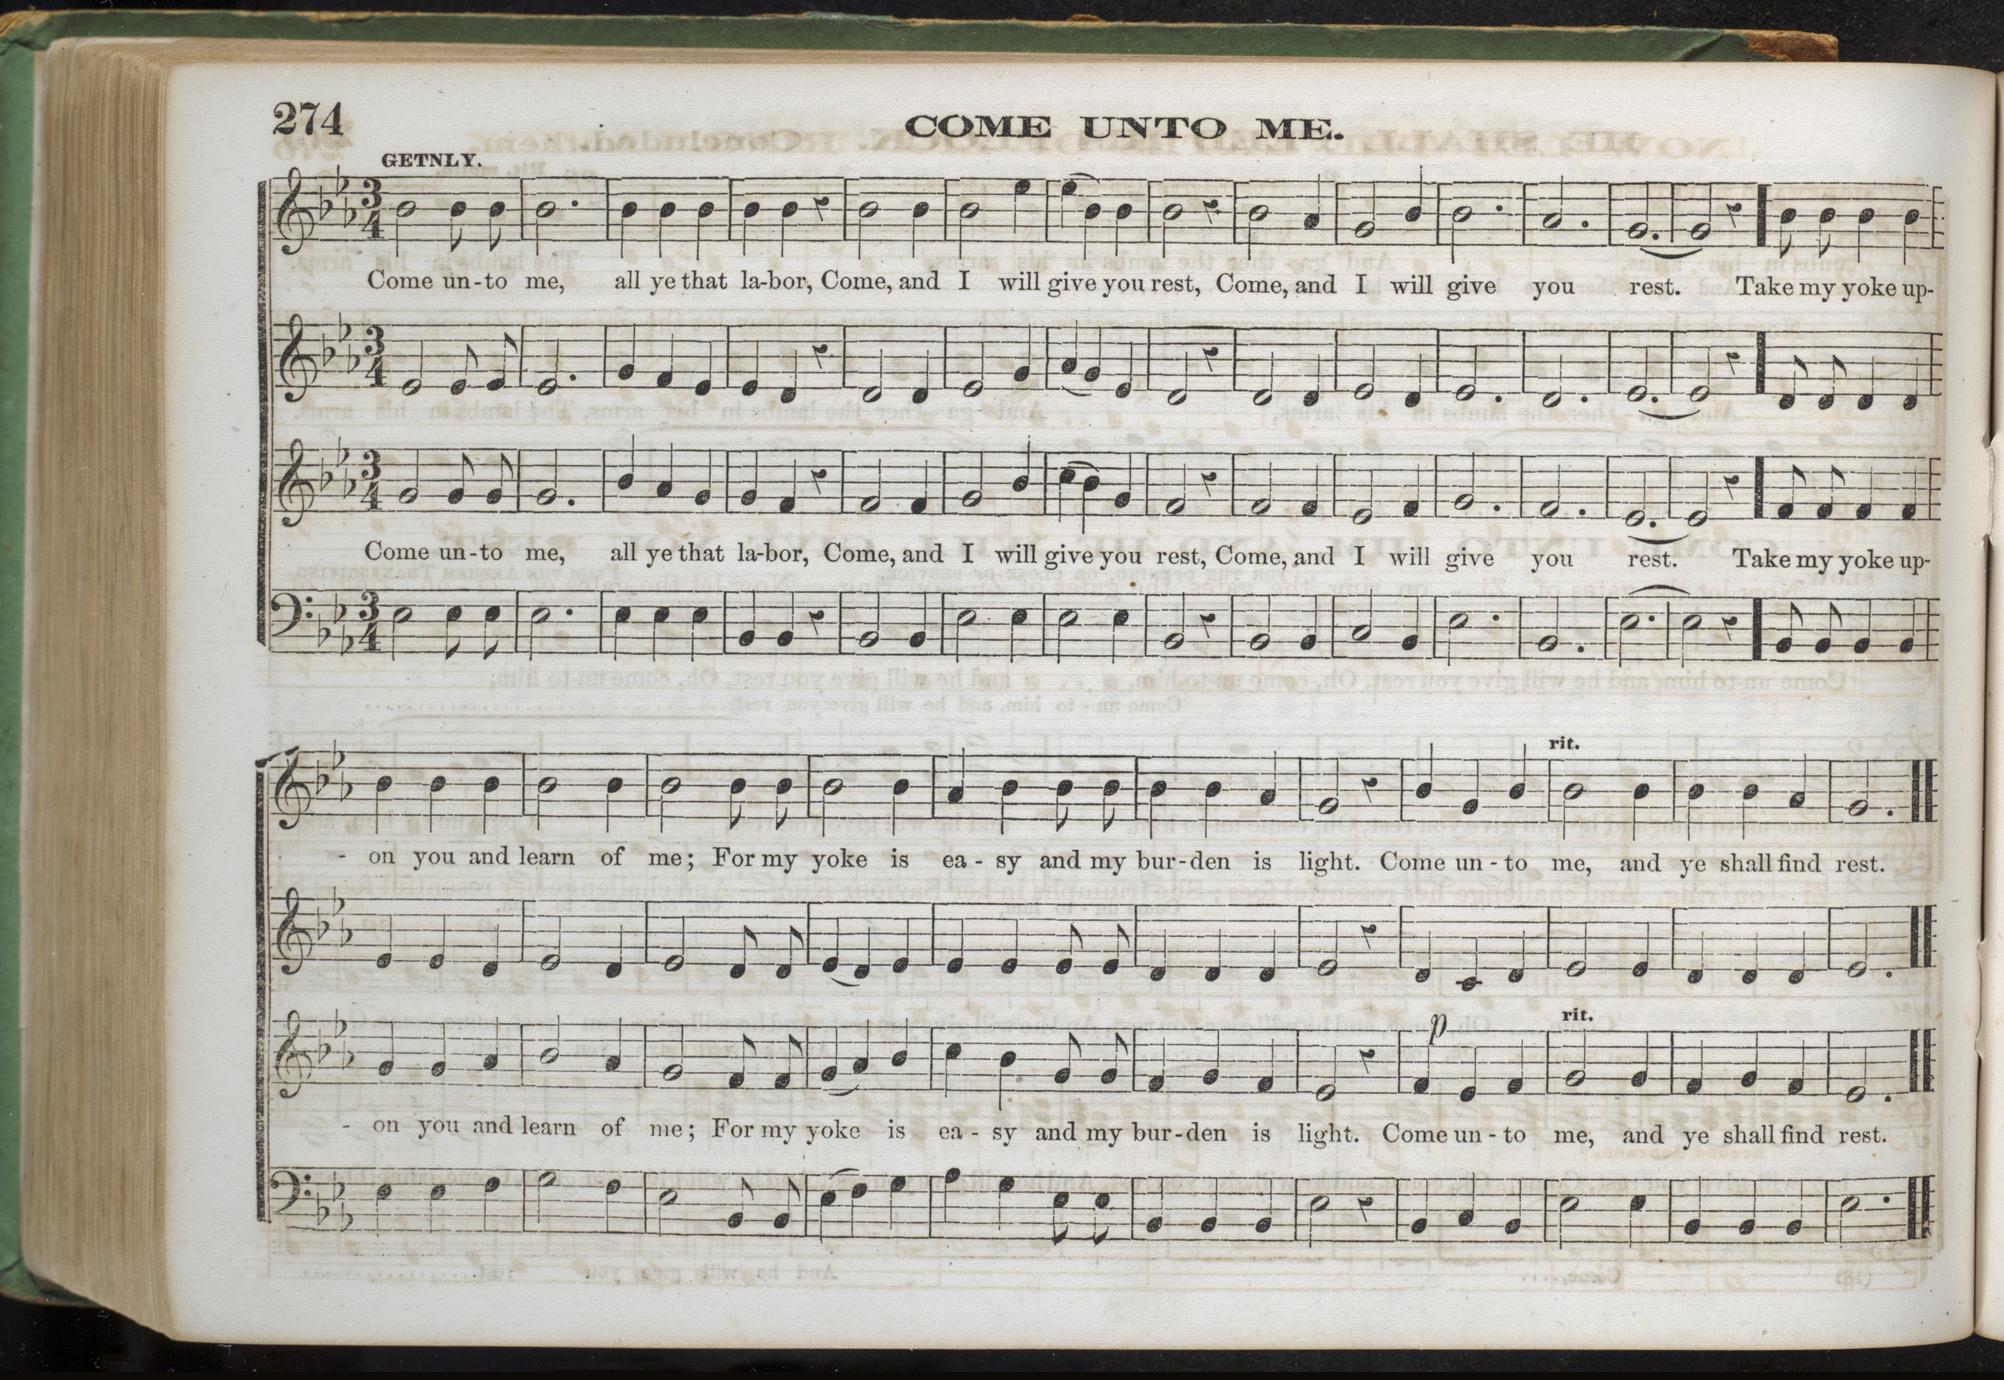 274
COME UNTO ME.
GETNLY.
3 4
Come un-to me, all ye that la-bor, Come, and I will give you rest, Come, and I will give you rest. Take my yoke up-
3 4
3 4
Come un-to me, all ye that la-bor, Come, and I will give you rest, Come, and I will give you rest. Take my yoke up-
3 4
rit.
- on you and learn of me; For my yoke is ea - sy and my bur-den is light. Come un - to me, and ye shall find rest.
p rit.
- on you and learn of me; For my yoke is ea - sy and my bur-den is light. Come un - to me, and ye shall find rest.